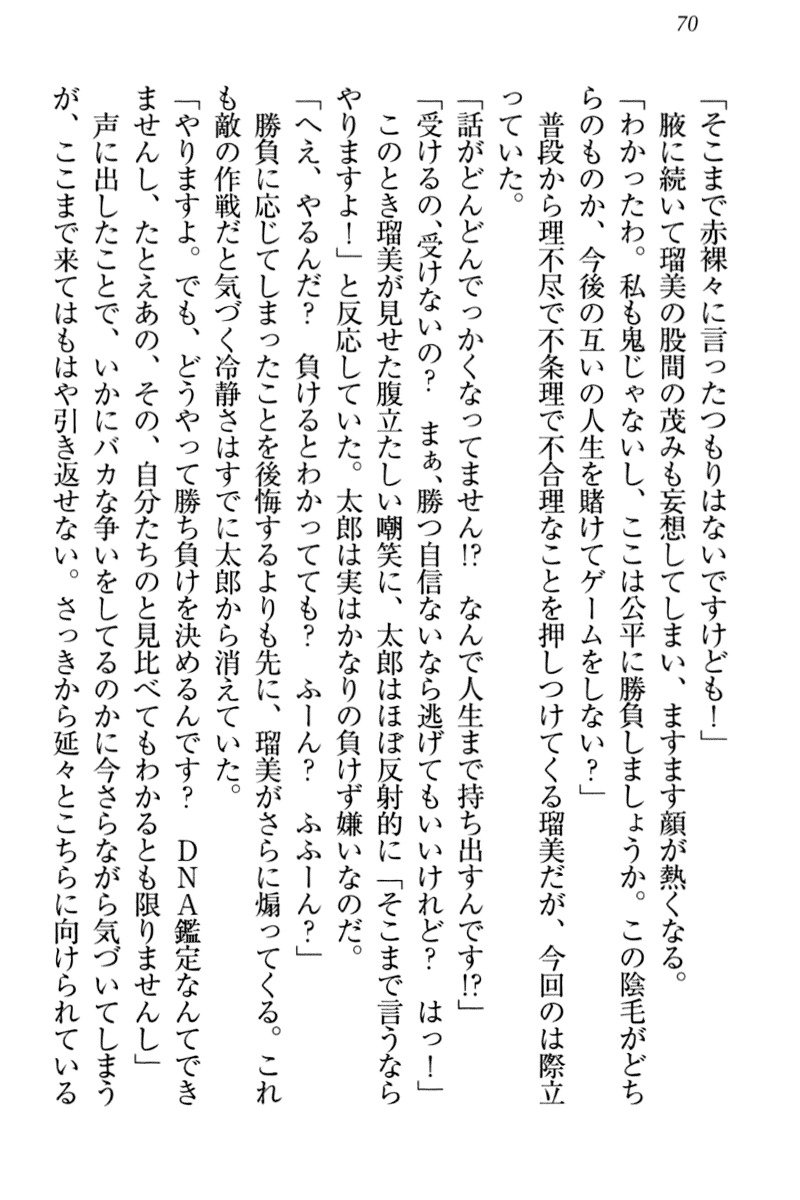 70
「そこまで赤裸々に言ったつもりはないですけども！」
　腋に続いて瑠美の股間の茂みも妄想してしまい、ますます顔が熱くなる。
「わかったわ。私も鬼じゃないし、ここは公平に勝負しましょうか。この陰毛がどち
らのものか、今後の互いの人生を賭けてゲームをしない？」
　普段から理不尽で不条理で不合理なことを押しつけてくる瑠美だが、今回のは際立
っていた。
「話がどんどんでっかくなってません!?　なんで人生まで持ち出すんです!?」
「受けるの、受けないの？　まぁ、勝つ自信ないなら逃げてもいいけれど？　はっ！」
　このとき瑠美が見せた腹立たしい嘲笑に、太郎はほぼ反射的に「そこまで言うなら
やりますよ！」と反応していた。太郎は実はかなりの負けず嫌いなのだ。
「へえ、やるんだ？　負けるとわかってても？　ふーん？　ふふーん？」
　勝負に応じてしまったことを後悔するよりも先に、瑠美がさらに煽ってくる。これ
も敵の作戦だと気づく冷静さはすでに太郎から消えていた。
「やりますよ。でも、どうやって勝ち負けを決めるんです？　DNA鑑定なんてでき
ませんし、たとえあの、その、自分たちのと見比べてもわかるとも限りませんし」
　声に出したことで、いかにバカな争いをしてるのかに今さらながら気づいてしまう
が、ここまで来てはもはや引き返せない。さっきから延々とこちらに向けられている